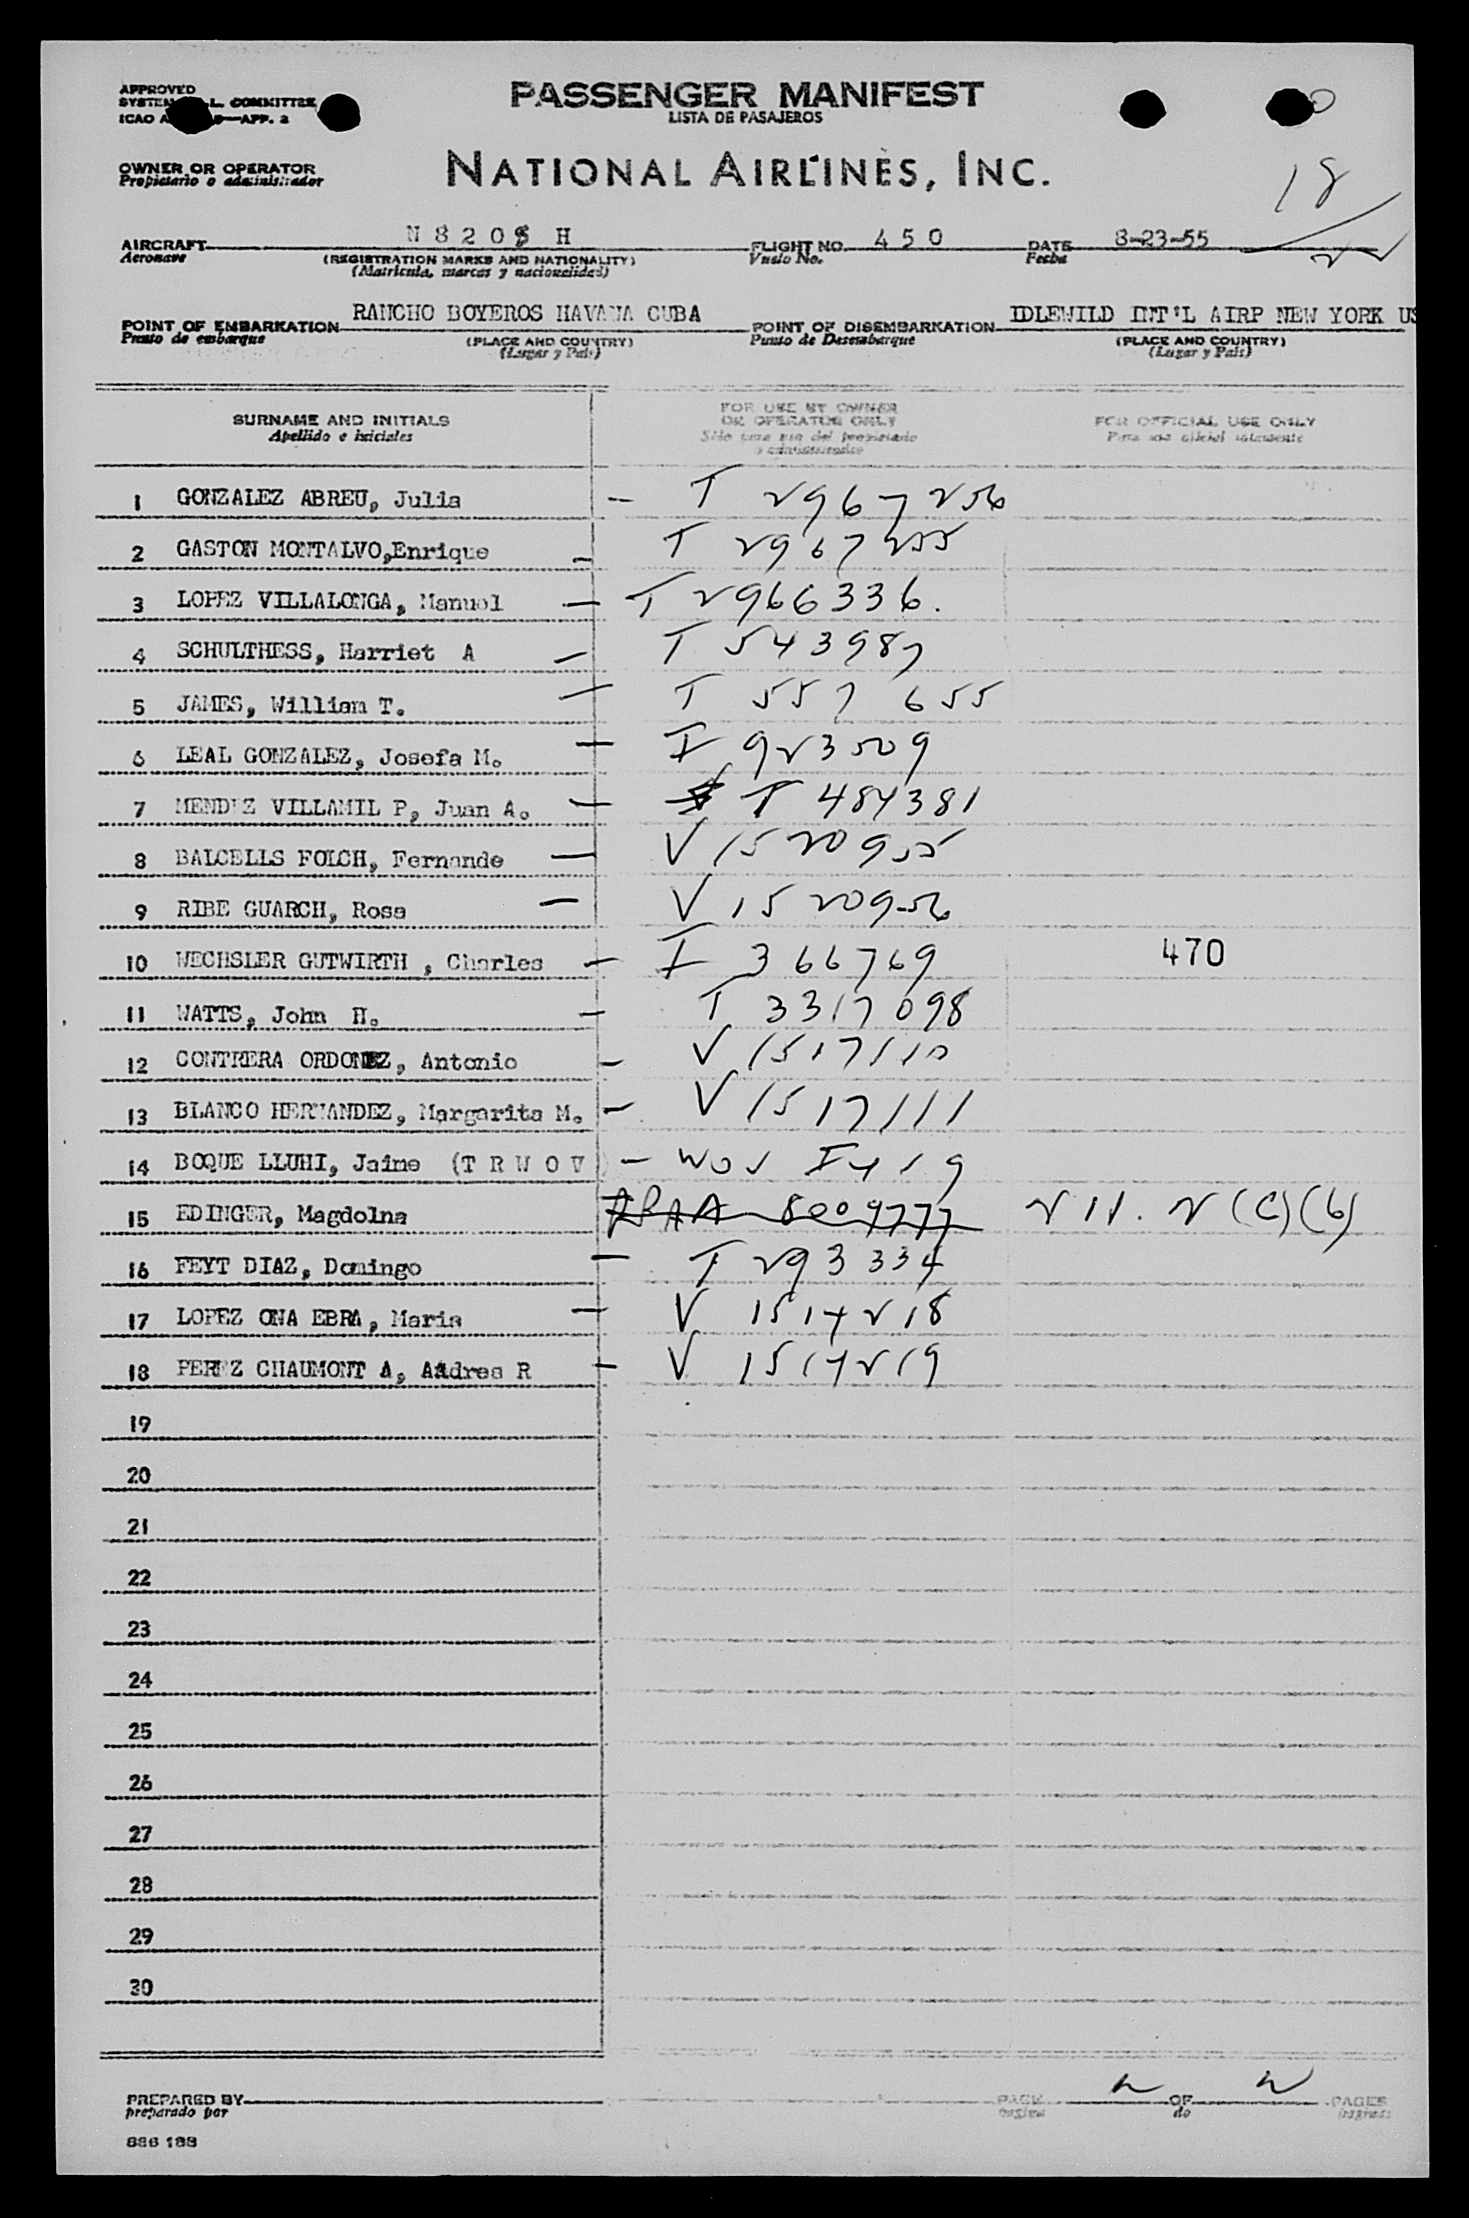 APPROVED
COMMITTEE
ICAO APP. 2
PASSENGER MANIFEST
LISTA DE PASAJEROS
OWNER OR OPERATOR
Propietario o administrador
NATIONAL AIRLINES, INC.
18
AIRCRAFT N 8 2 0 8 H FLIGHT NO. 4 5 0 DATE 8-23-55
Aeronave (REGISTRATION MARKS AND NATIONALITY) Vuelo No. Fecha
(Matricula, marcas y nacionalidad)
POINT OF EMBARKATION RANCHO BOYEROS HAVANA CUBA POINT OF DISEMBARKATION IDLEWILD INT'L AIRP NEW YORK US
Punto de embarque (PLACE AND COUNTRY) Punto de Desembarque (PLACE AND COUNTRY)
(Lugar y Pais) (Lugar y Pais)
SURNAME AND INITIALS FOR USE BY OWNER OR OPERATOR ONLY FOR OFFICIAL USE ONLY
Apellido e iniciales Sólo para uso del propietario o administrador Para uso oficial solamente
1 GONZALEZ ABREU, Julia - T 2967256
2 GASTON MONTALVO,Enrique - T 2967255
3 LOPEZ VILLALONGA, Manuel - T 2966336.
4 SCHULTHESS, Harriet A - T 543987
5 JAMES, William T. - T 557 655
6 LEAL GONZALEZ, Josefa M. - I 923509
7 MENDEZ VILLAMIL P, Juan A. - T 484381
8 BALCELLS FOLCH, Fernande - V 1520955
9 RIBE GUARCH, Rosa - V 1520956
10 WECHSLER GUTWIRTH , Charles - I 366769 470
11 WATTS, John H. - T 3317098
12 CONTRERA ORDONEZ, Antonio - V 1517110
13 BLANCO HERNANDEZ, Margarita M. - V 1517111
14 BOQUE LLUHI, Jaime (T R W O V) - WOV I419
15 EDINGER, Magdolna 8009777 211. 2(C)(6)
16 FEYT DIAZ, Domingo - T 293334
17 LOPEZ ONA EBRA, Maria - V 1514218
18 PEREZ CHAUMONT A, Andres R - V 1514219
19
20
21
22
23
24
25
26
27
28
29
30
PREPARED BY PAGE 2 OF 2 PAGES
preparado por de